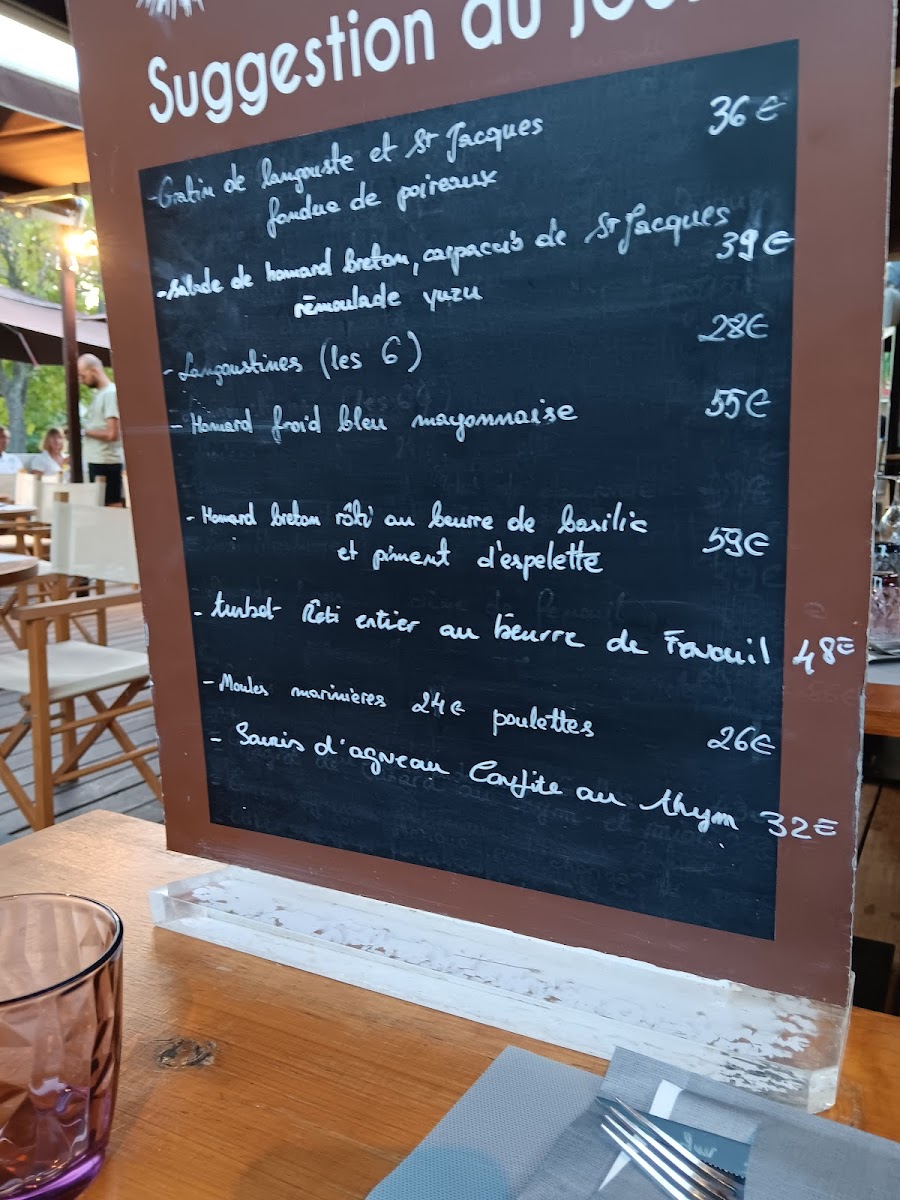 Suggestion du jour
-Gratin de langouste et St Jacques 36€
fondue de poireaux
-salade de homard breton, carpaccio de St Jacques 39€
rémoulade yuzu
-Langoustines (les 6) 28€
- Homard froid bleu mayonnaise 55€
- Homard breton rôti au beurre de basilic
et piment d'espelette 59€
- turbot Rôti entier au beurre de Favouil 48€
- Moules marinières 24€ poulettes 26€
- Souris d'agneau Confite au thym 32€